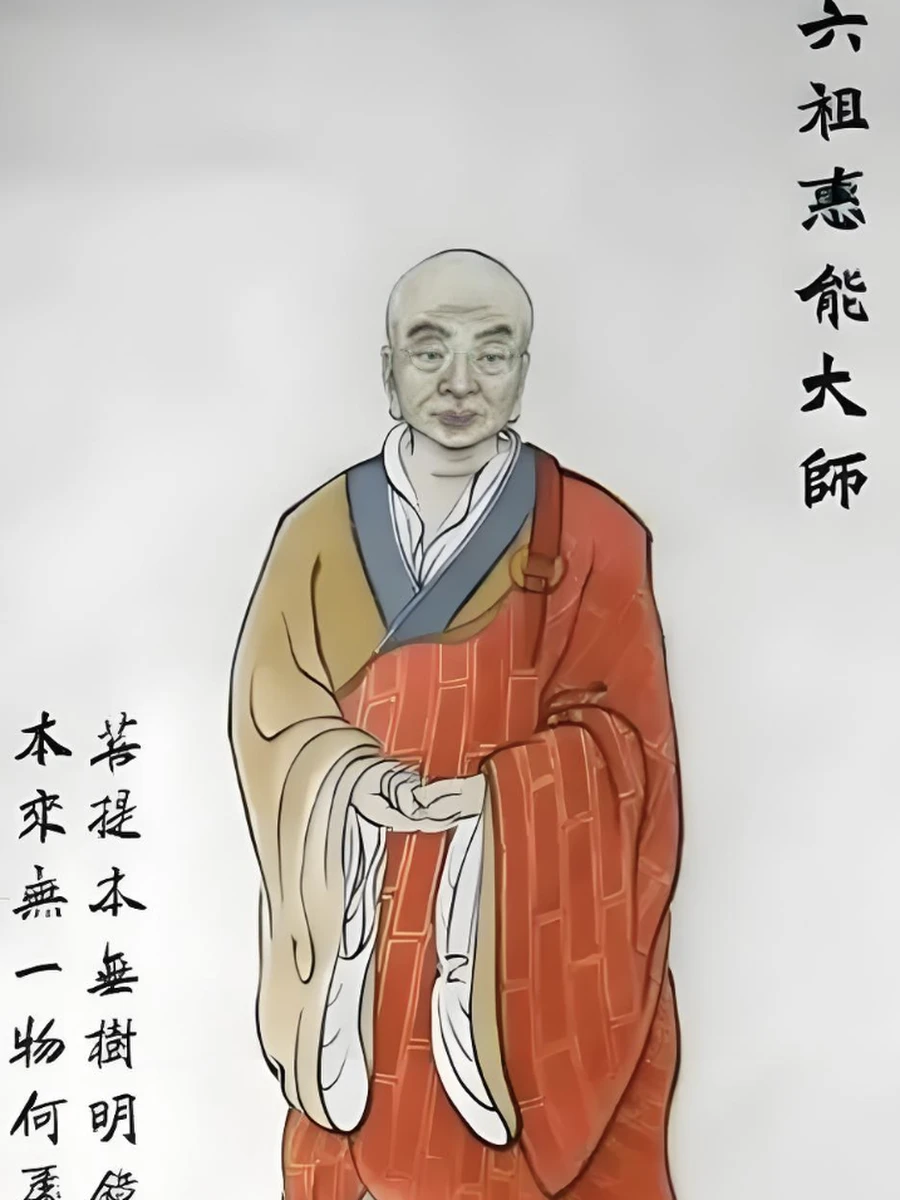 六祖惠能大師
菩提本無樹明鏡
本來無一物何